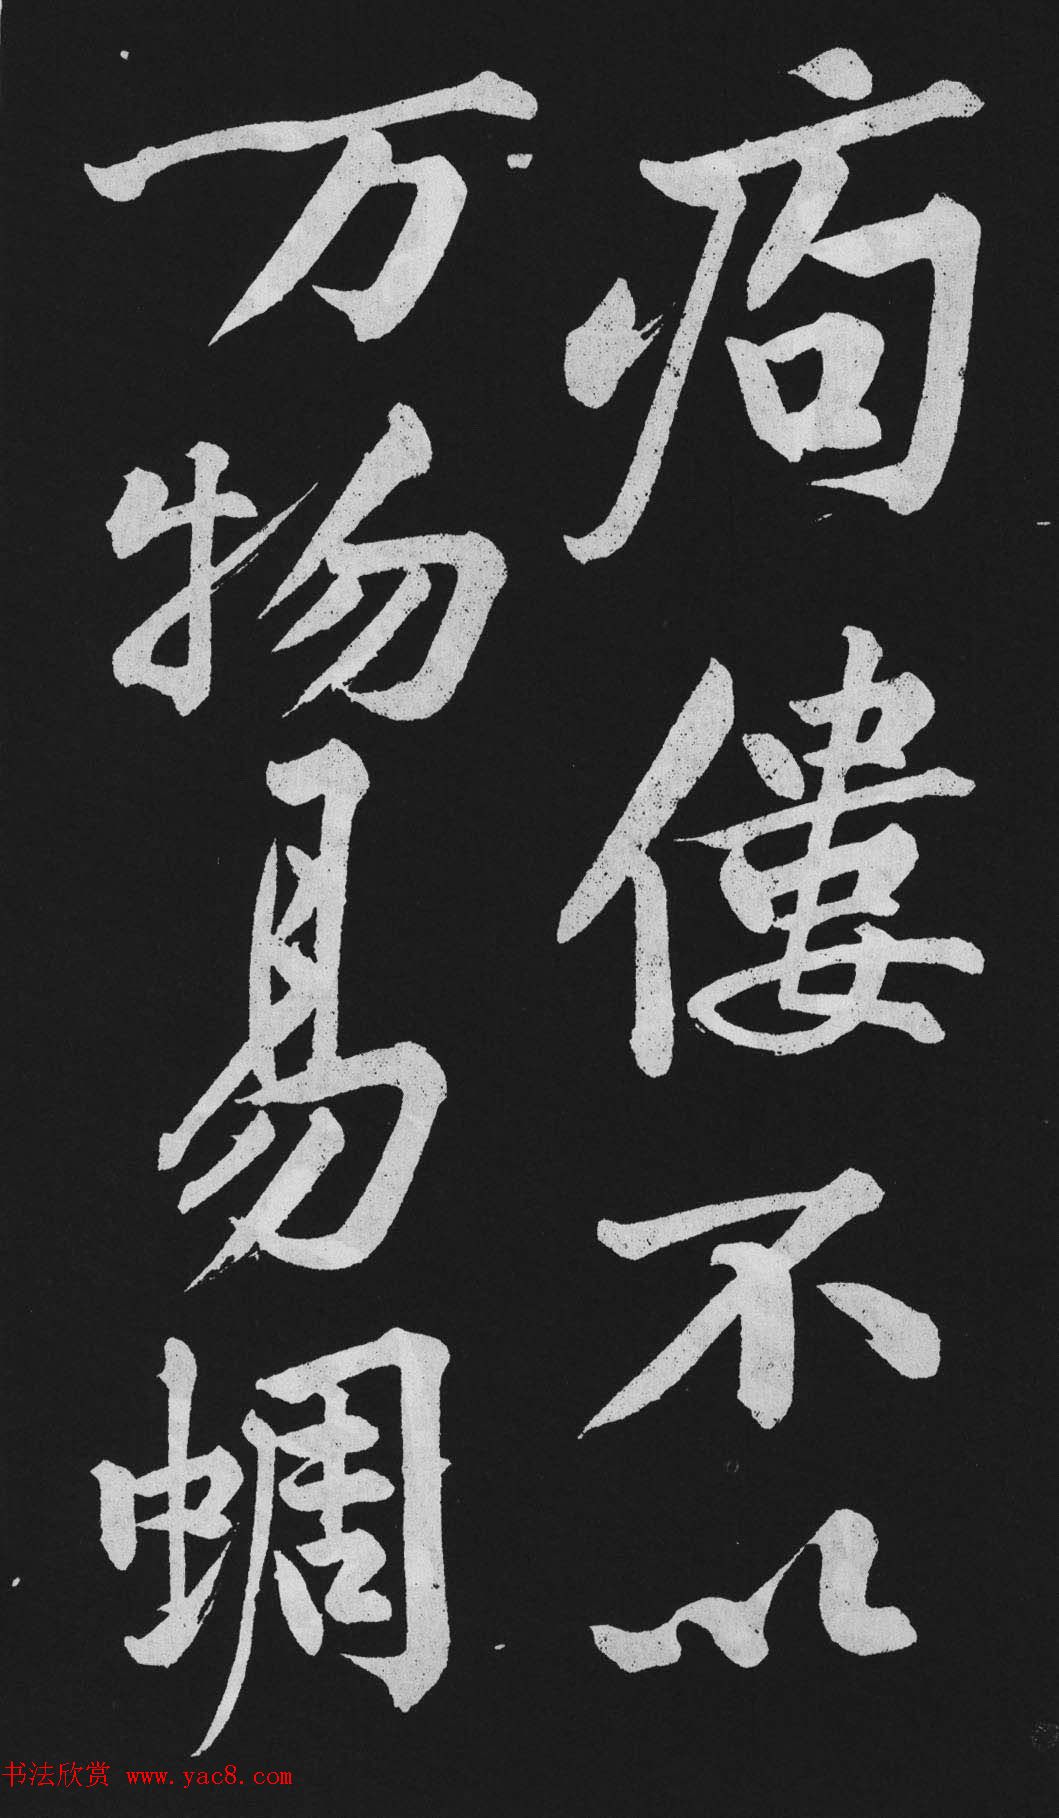 痀僂不以
万物易蜩
书法欣赏 www.yac8.com